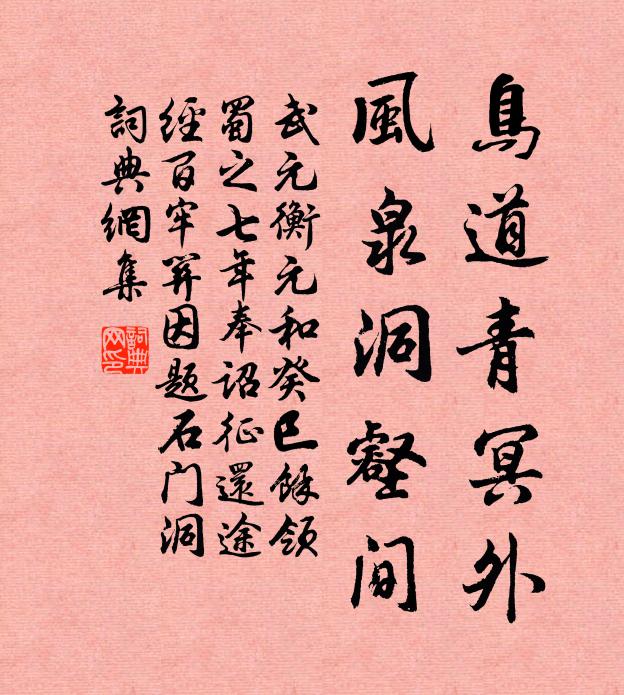 鳥道青冥外
風泉洞壑間
武元衡元和癸巳餘領
蜀之七年奉詔征還途
經百牢関因题石门洞
詞典網集
詞典网印